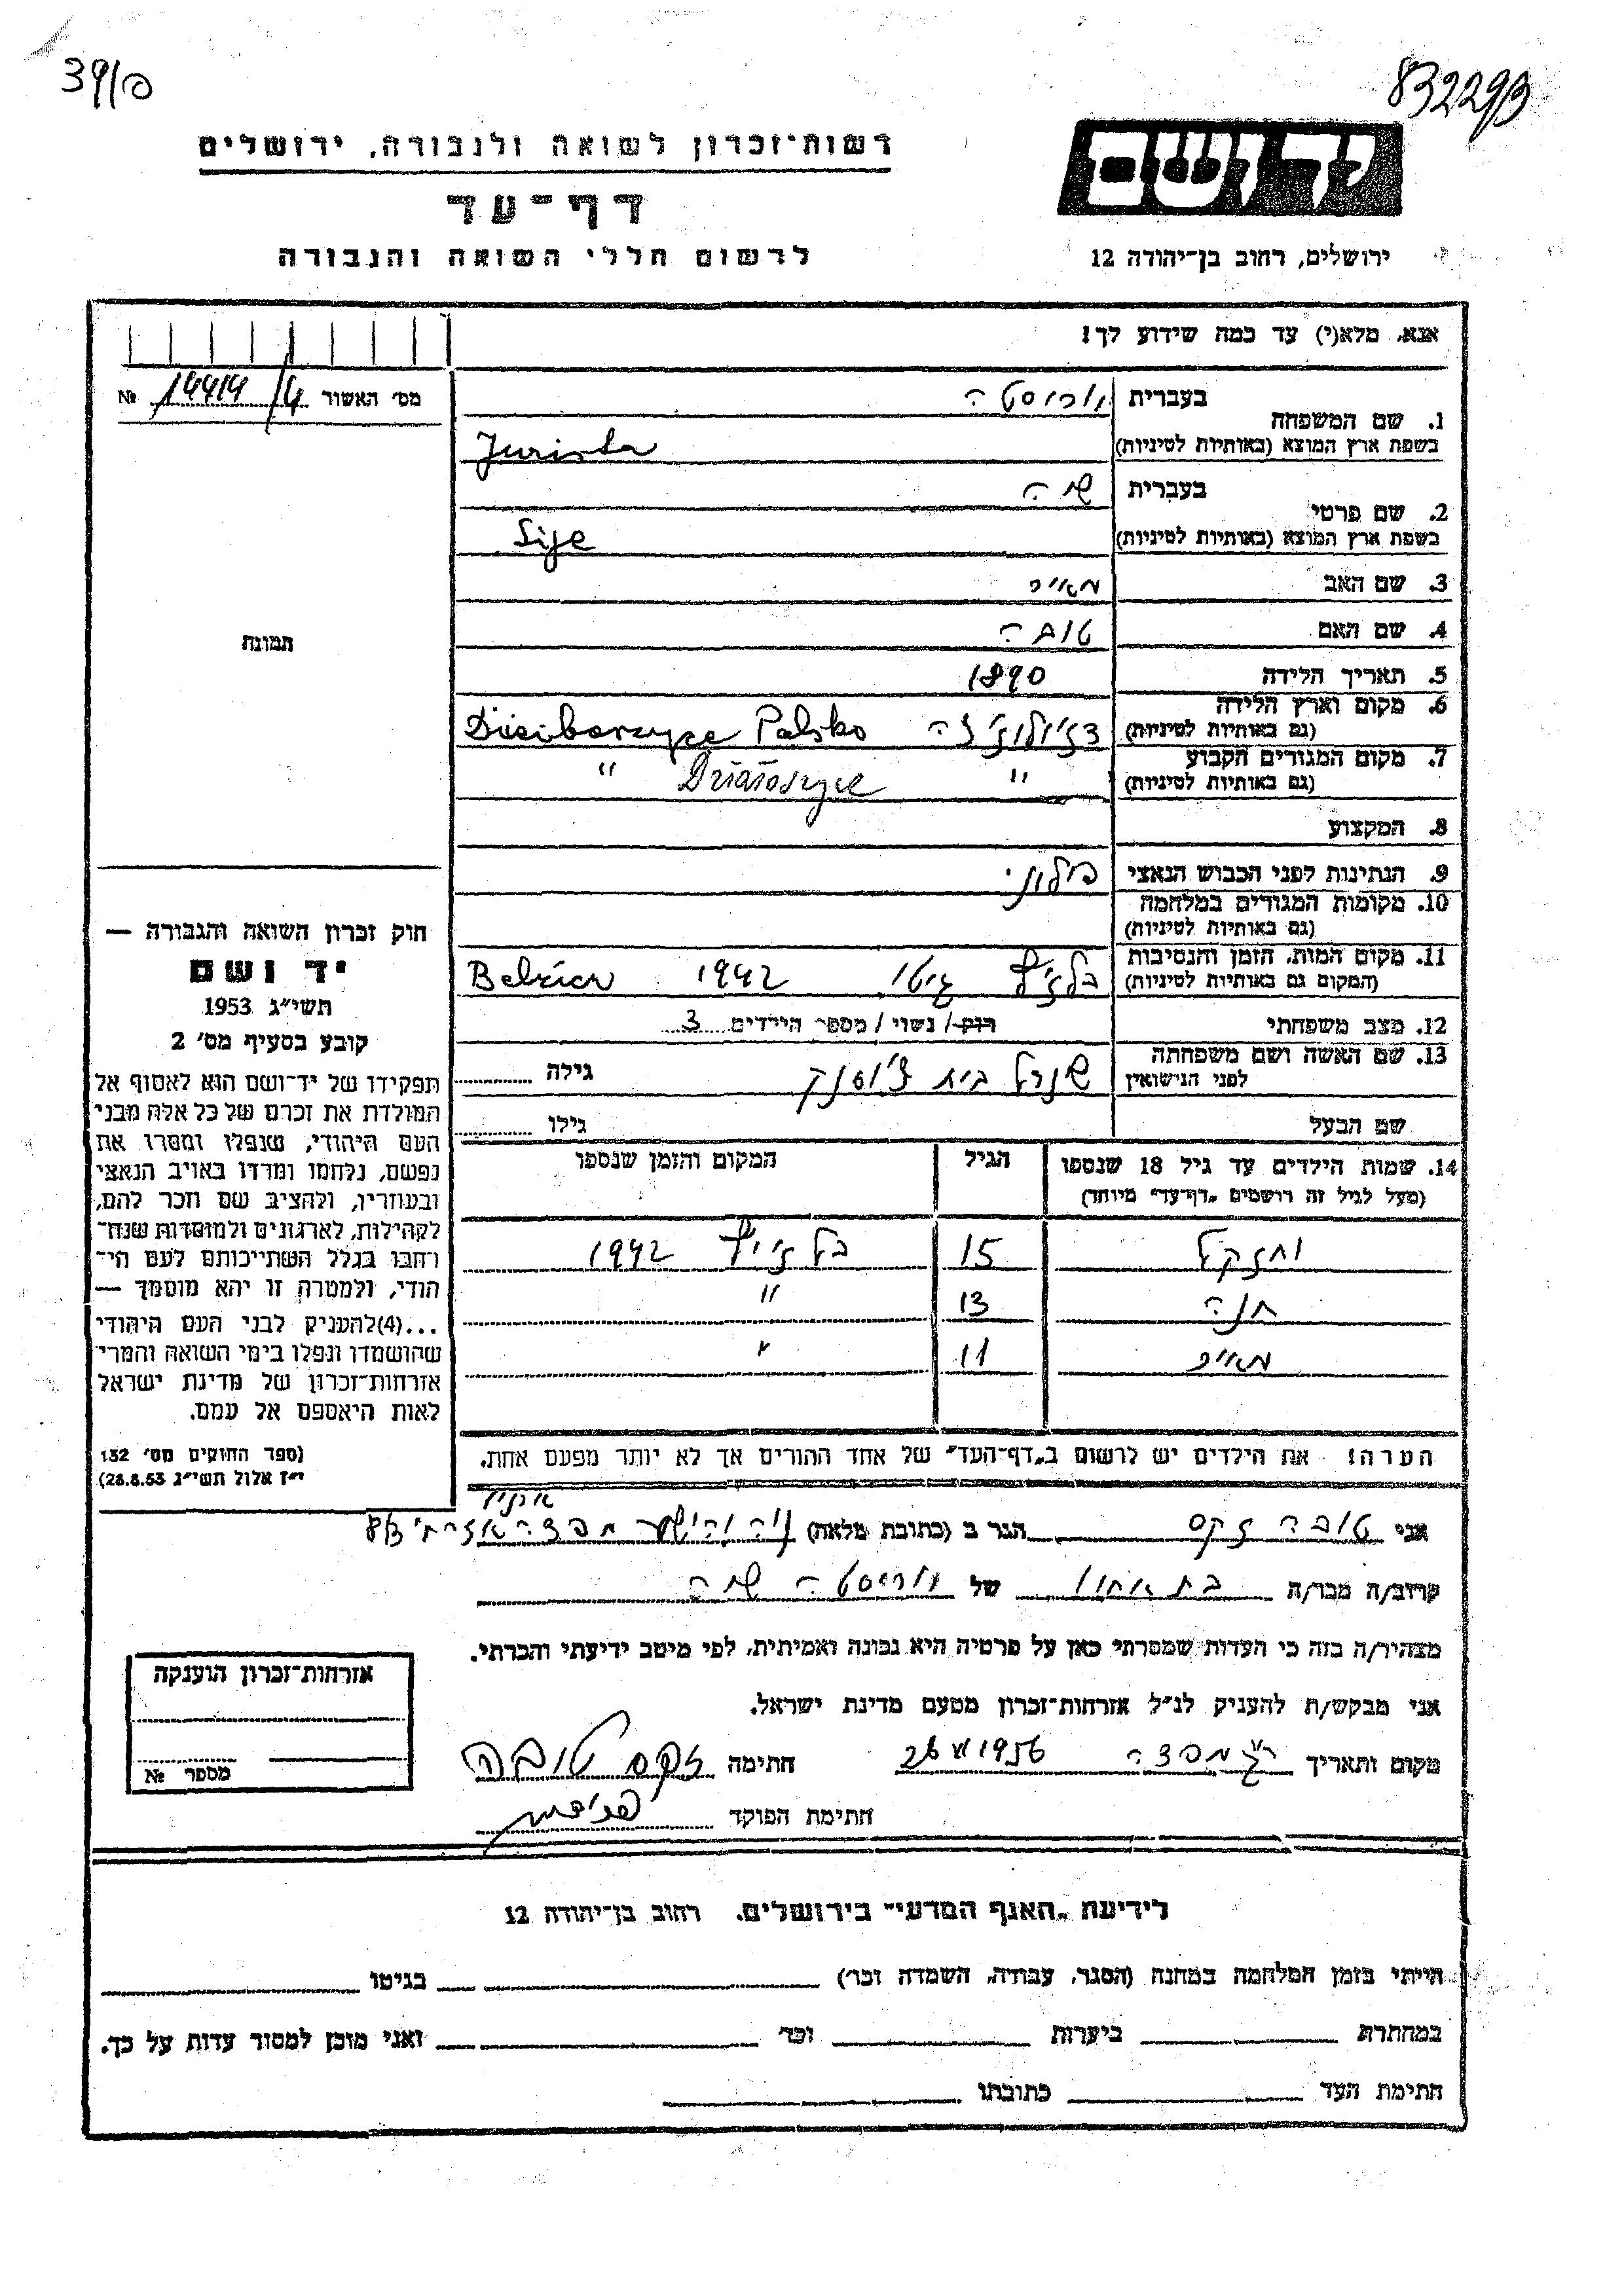 39/פ
83229/3
רשות־זכרון לשואה ולגבורה, ירושלים
יד ושם
דף־עד
לרשום חללי השואה והגבורה
ירושלים, רחוב בן־יהודה 12
אנא, מלא(י) עד כמה שידוע לך!
מס׳ האשור №
1. שם המשפחה
בעברית
בשפת ארץ המוצא (באותיות לטיניות) Jurista
2. שם פרטי
בעברית שיה
בשפת ארץ המוצא (באותיות לטיניות) Sije
3. שם האב מאיר
4. שם האם טובה
5. תאריך הלידה 1890
6. מקום וארץ הלידה
(גם באותיות לטיניות) Polsko
7. מקום המגורים הקבוע
(גם באותיות לטיניות) " Działoszyce "
8. המקצוע
9. הנתינות לפני הכבוש הנאצי פולוני
10. מקומות המגורים במלחמה
(גם באותיות לטיניות)
11. מקום המות, הזמן והנסיבות
(המקום גם באותיות לטיניות) 1942
12. מצב משפחתי רוק / נשוי / מספר הילדים 3
13. שם האשה ושם משפחתה
לפני הנישואין גילה
שם הבעל גילו
14. שמות הילדים עד גיל 18 שנספו הגיל המקום והזמן שנספו
(מעל לגיל זה רושמים „דף־עד" מיוחד)
יחזקל 15 1942
חנה 13 "
מאיר 11 "
הערה! את הילדים יש לרשום ב„דף־העד" של אחד ההורים אך לא יותר מפעם אחת.
תמונה
חוק זכרון השואה והגבורה —
יד ושם
תשי״ג 1953
קובע בסעיף מס׳ 2
תפקידו של יד־ושם הוא לאסוף אל
המולדת את זכרם של כל אלה מבני
העם היהודי, שנפלו ומסרו את
נפשם, נלחמו ומרדו באויב הנאצי
ובעוזריו, ולהציב שם וזכר להם,
לקהילות, לארגונים ולמוסדות שנח־
רחבו בגלל השתייכותם לעם הי־
הודי, ולמטרה זו יהא מוסמך —
...(4)להעניק לבני העם היהודי
שהושמדו ונפלו בימי השואה והמרי
אזרחות־זכרון של מדינת ישראל
לאות היאספם אל עמם.
(ספר החוקים מס׳ 132
י״ז אלול תשי״ג 28.8.53)
אני טובה זקס הגר ב (כתובת מלאה)
קרוב/ה מכר/ה בת אחיו של יוריסטה שיה
מצהיר/ה בזה כי העדות שמסרתי כאן על פרטיה היא נכונה ואמיתית, לפי מיטב ידיעתי והכרתי.
אני מבקש/ת להעניק לנ״ל אזרחות־זכרון מטעם מדינת ישראל.
מקום ותאריך 1956 חתימה זקס טובה
חתימת הפוקד
אזרחות־זכרון הוענקה
מספר №
לידיעת „האגף המדעי" בירושלים, רחוב בן־יהודה 12
הייתי בזמן המלחמה במחנה (הסגר, עבודה, השמדה וכו׳) בגיטו
במחתרת ביערות וכו׳ ואני מוכן למסור עדות על כך.
חתימת העד כתובתו